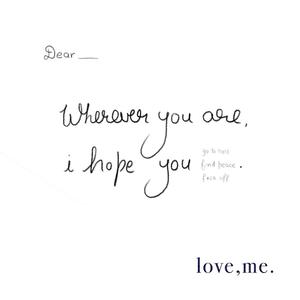 Dear __
Wherever you are,
i hope you
go to hell
find peace
fuck off
.
love,me.